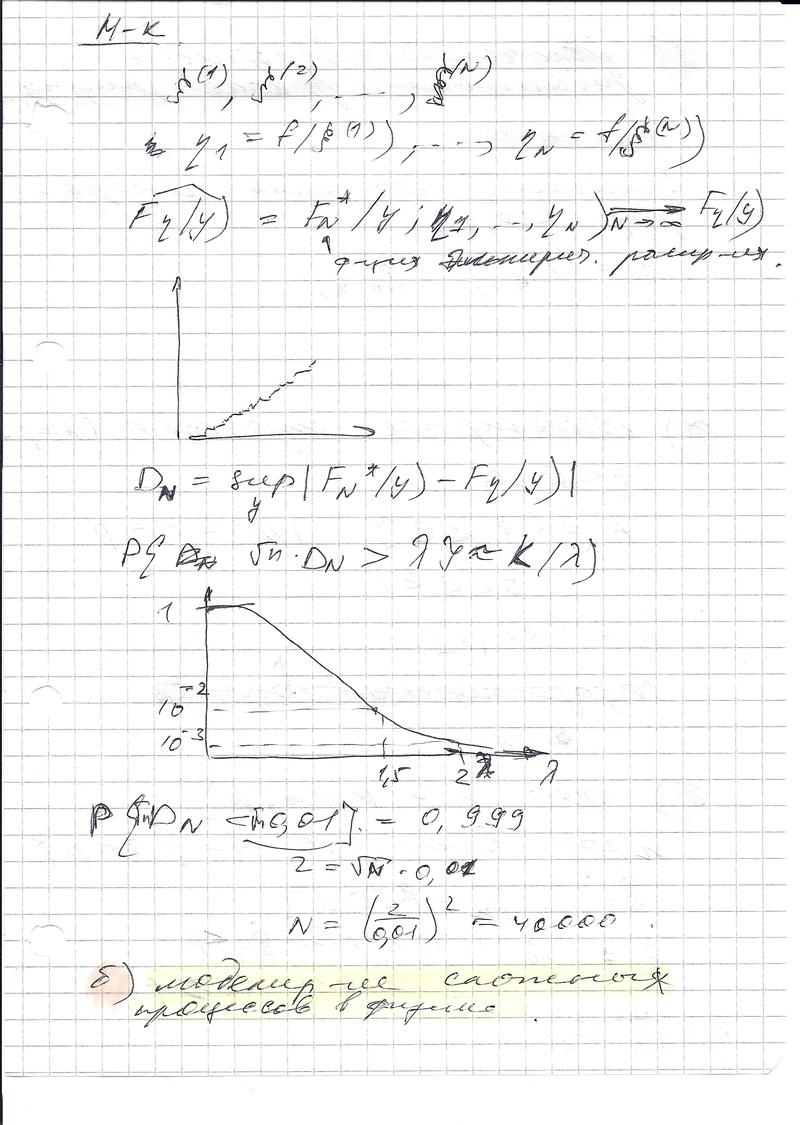 М-К
ξ^(1), ξ^(2), ...., ξ^(N)
η₁ = f(ξ^(1)), ...., η_N = f(ξ^(N))
F̂η(y) = F_N*(y; η₁, ..., η_N) ⟶ N→∞ Fη(y)
↑ ф-ция эмпирич. распр-ия.
D_N = sup_y | F_N*(y) - Fη(y) |
P{ √n · D_N > λ } ≈ K(λ)
1
10⁻²
10⁻³
1,5 2 λ
P{√n D_N < √n 0,01} = 0,999
2 = √N · 0,01
N = (2/0,01)² = 40000.
б) моделир-ие сложных
процессов в физике.